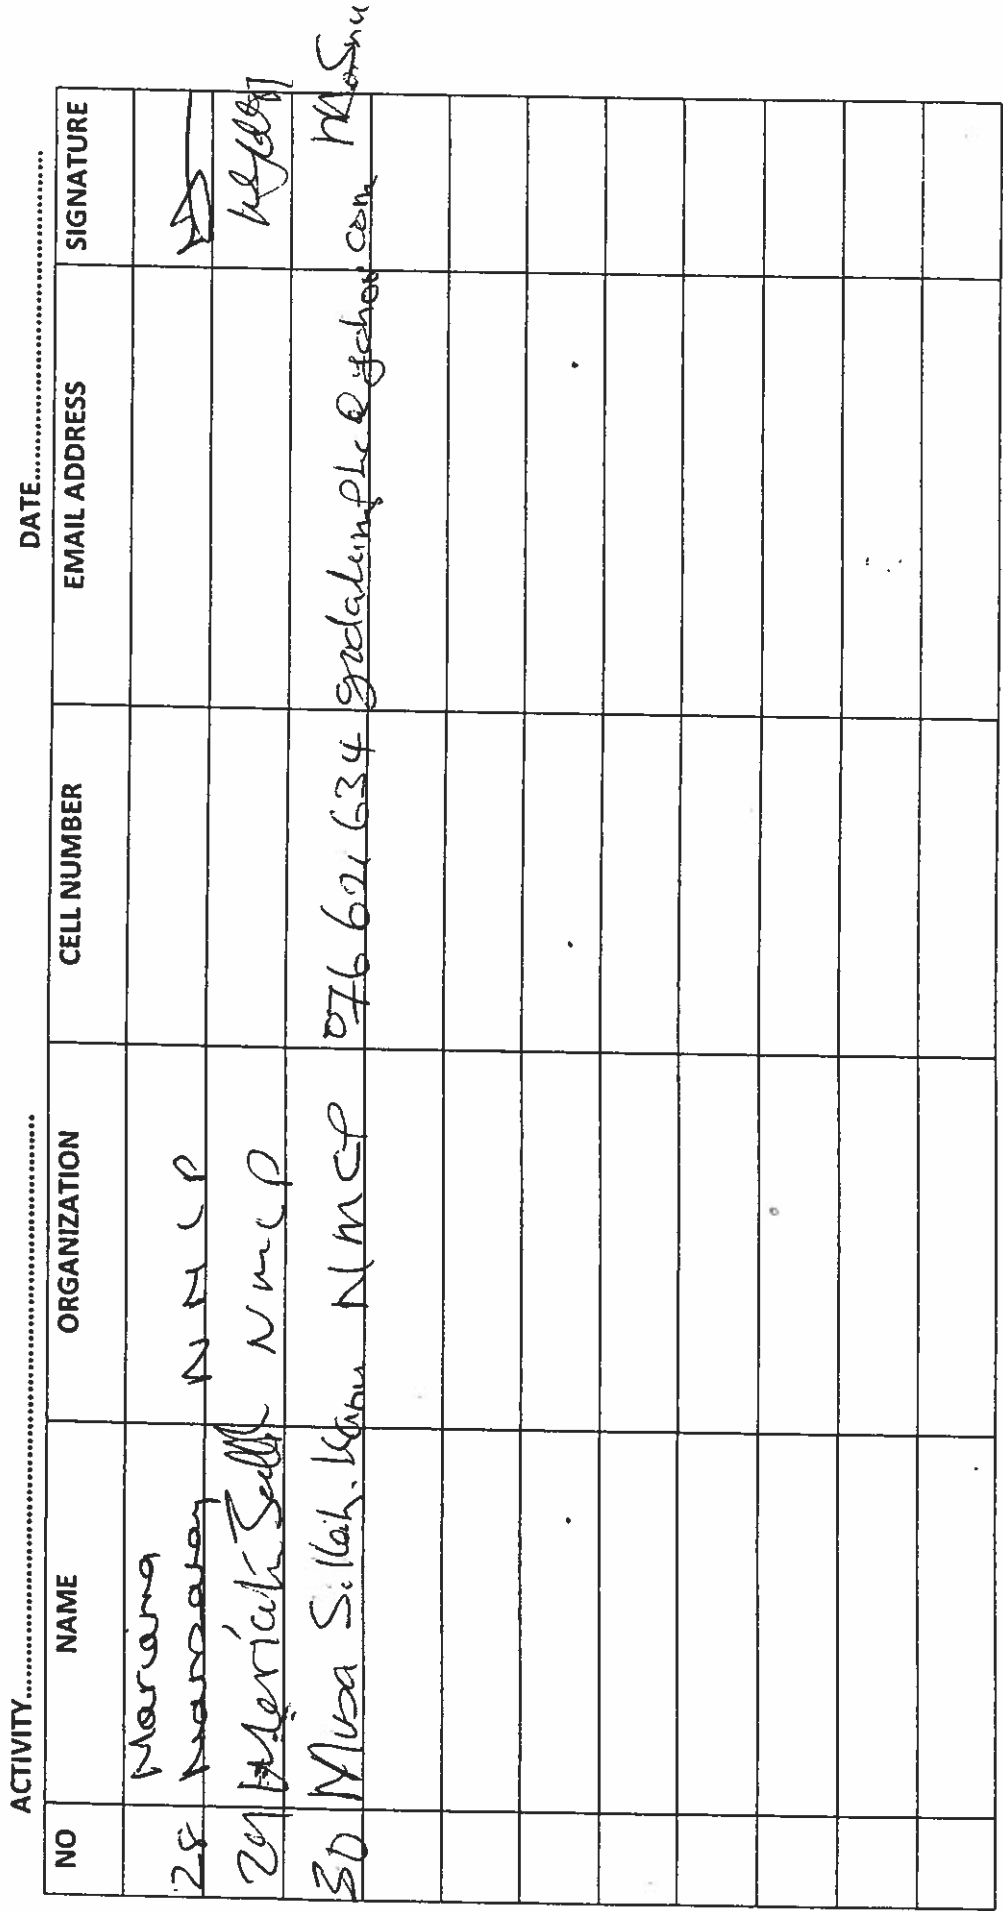 ACTIVITY.................... DATE....................
NO NAME ORGANIZATION CELL NUMBER EMAIL ADDRESS SIGNATURE
Mariama
28 Mansaray NMCP
29 NMCP
30 Musa Sillah. Kanu NMCP 076 621 634 @yahoo.com